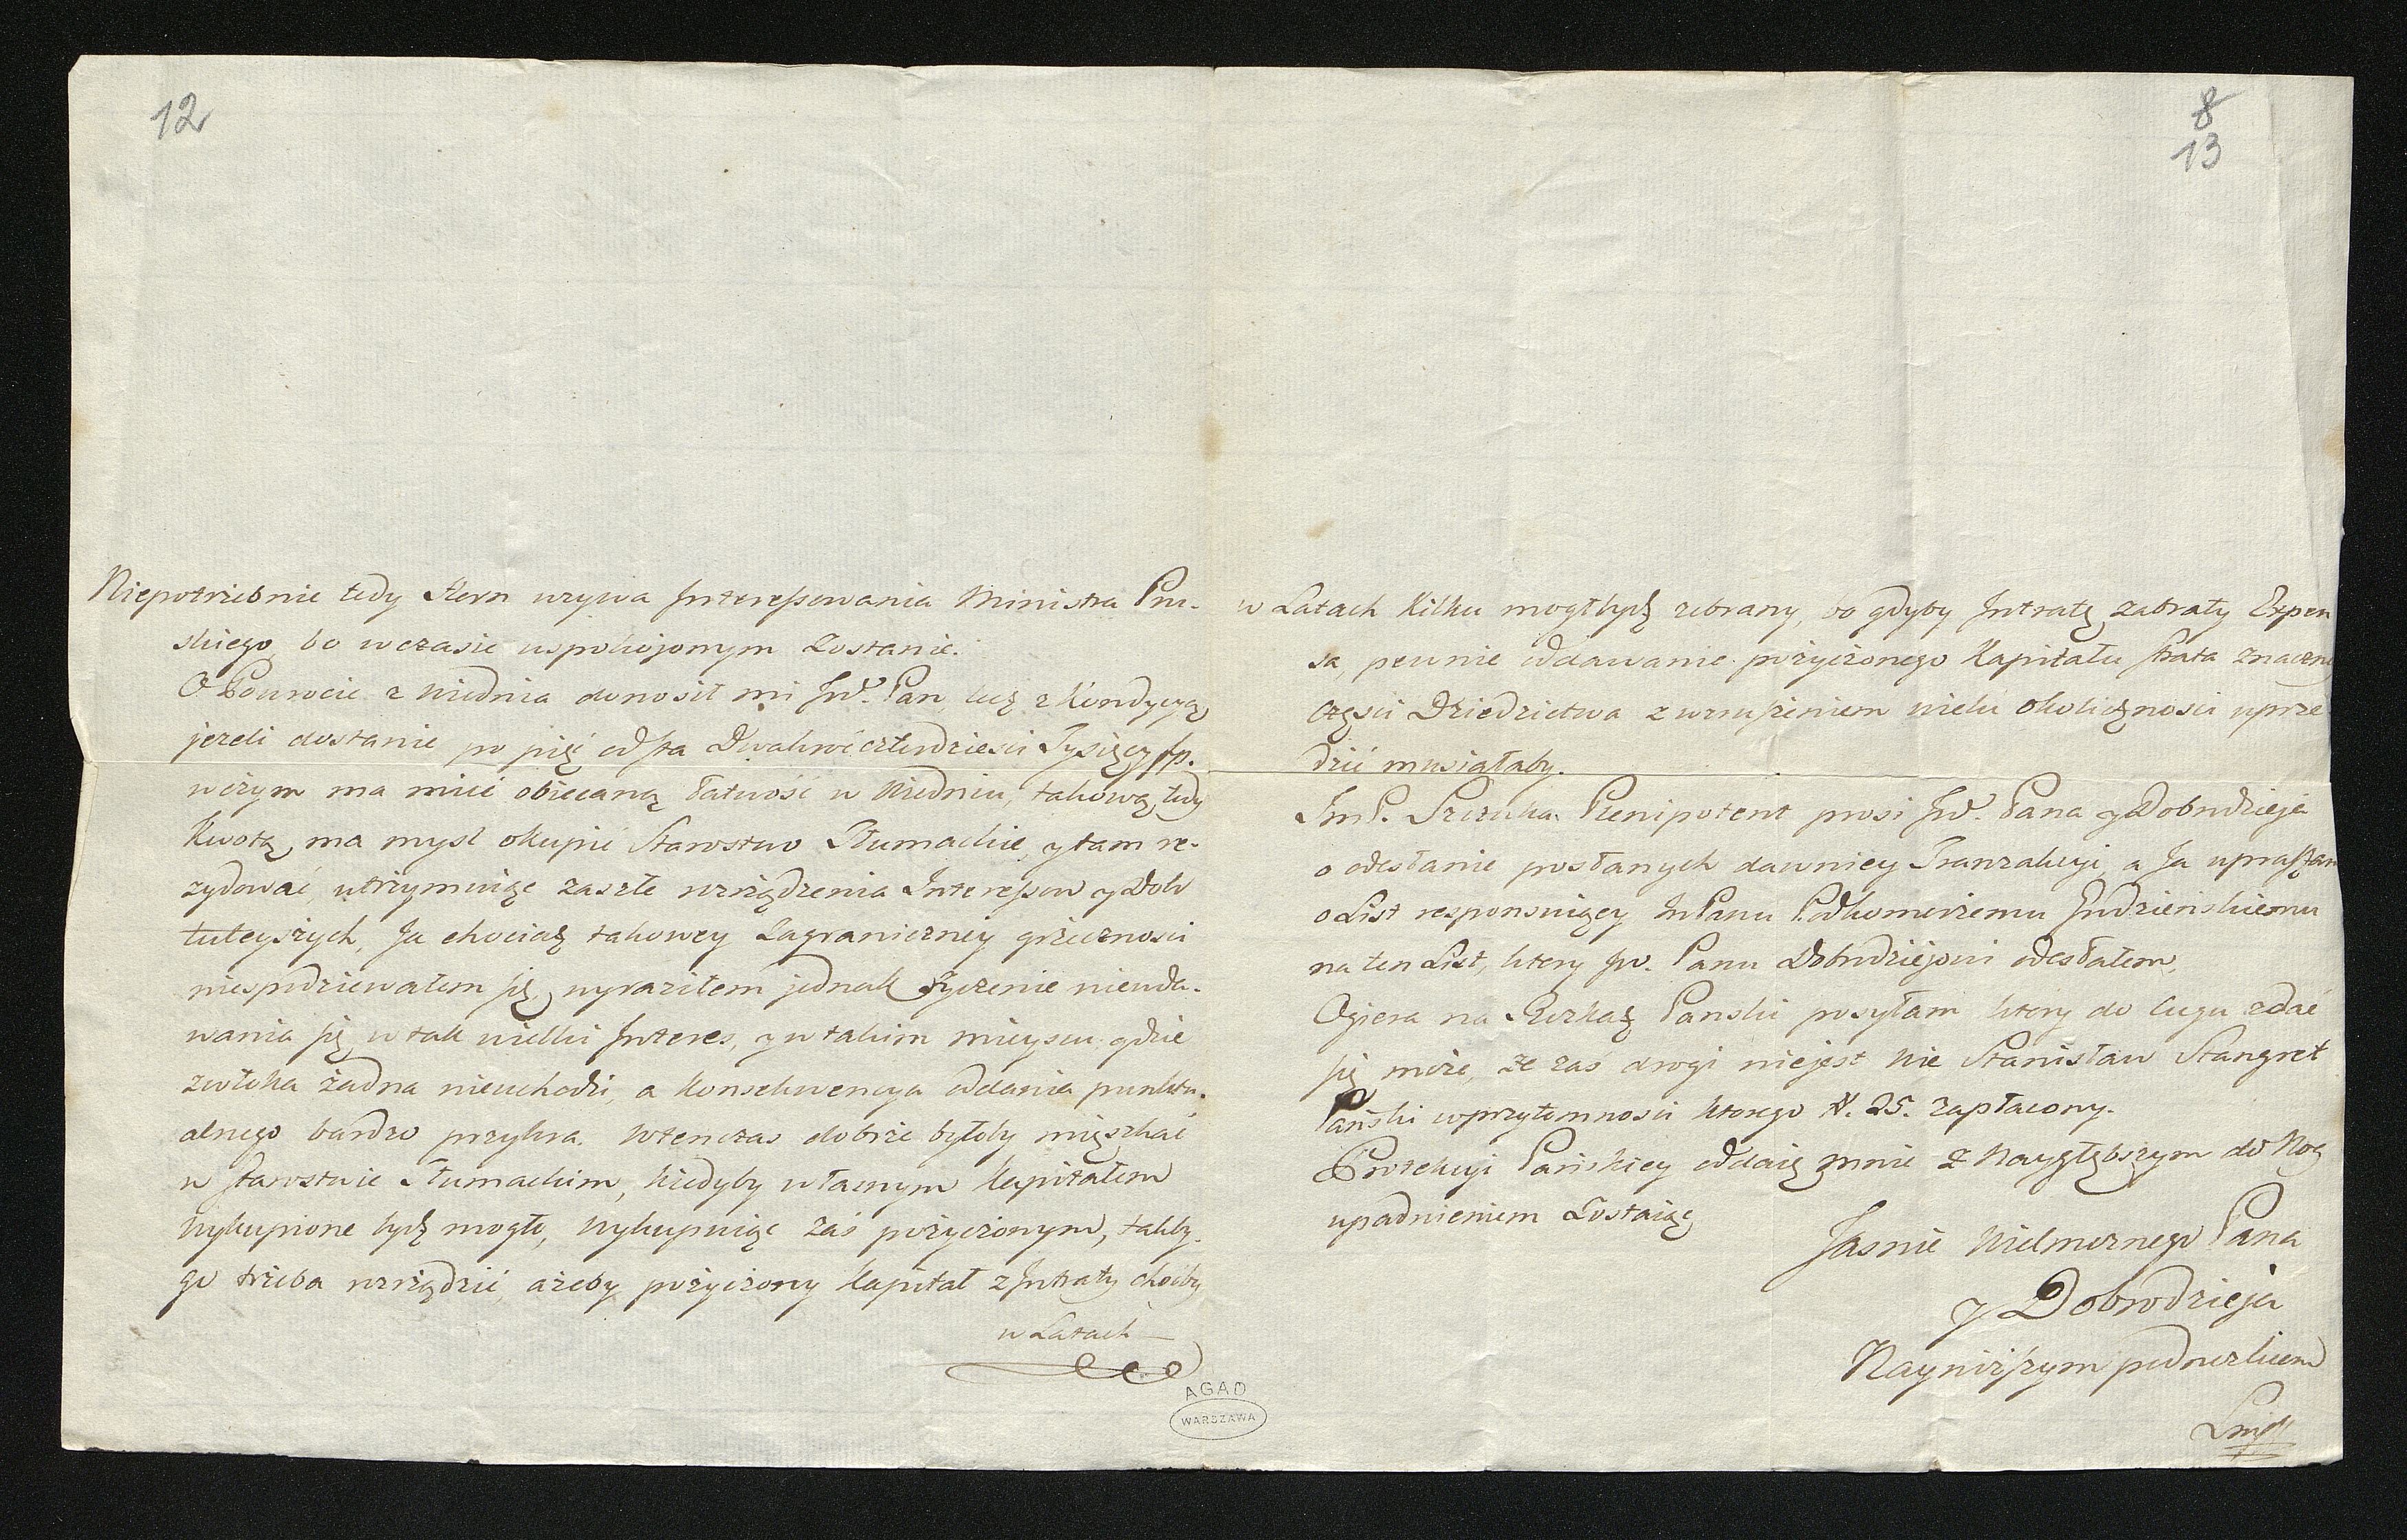 12
Niepotrzebnie tedy Stern uzywa Interessowania Ministra Pru-
skiego, bo wczasie uspokojonym Zostanie.
O Powrocie z Wiednia donosił mi JW. Pan, lecz z Kondycyą,
jezeli dostanie po pięć od sta Dwakroć czterdzieści Tysięcy fp.
wczym ma mieć obiecaną łatwość w Wiedniu, takową tedy
Kwotą, ma mysl okupić Starostwo Tłumackie, y tam re-
zydować, utrzymuiąc zaszłe urządzenia Interessow y Dobr
tuteyszych, Ja chociaż takowey Zagraniczney grzeczności
niespodziewałem się, wyraziłem jednak życzenie niewda-
wania się w tak wielki Interes, y w takim mieyscu gdzie
zwłoka żadna nieuchodzi, a konsekwencya oddania punktu-
alnego bardzo przykra. Wtenczas dobrze byłoby mięszkać
w Starostwie Tłumackim, kiedyby własnym Kapitałem
wykupione bydź mogło, wykupuiąc zaś pożyczonym, takby-
go trzeba urządzić, ażeby pożyczony Kapitał z Intraty choćby
w Latach
8
13
w Latach Kilku mogł bydź zebrany, bo gdyby Intratę zabrały Expen
sa, pewnie oddawanie pożyczonego Kapitału strata znaczney
części Dziedzictwa z wzruszeniem wielu okoliczności uprze
dzić musiałaby.
ImP. Szczuka Plenipotent prosi JW. Pana y Dobrodzieja
o odesłanie posłanych dawniey Tranzakcyi, a Ja upraszam
o List responsuiący JmPanu Podkomorzemu
na ten List, ktory JW. Panu Dobrodziejowi odesłałem,
Ogiera na Rozkaz Panski posyłam ktory do Cugu zdać
się może, że zaś drogi niejest wie Stanisław Stangret
Pański wprzytomności ktorego #. 25. zapłacony.
Protekcyi Pańskiey oddaię mnie z Naygłębszym do Nog
upadnieniem Zostaię
Jasnie Wielmoznego Pana
y Dobrodzieja
Nayniższym podnozkiem
AGAD
WARSZAWA